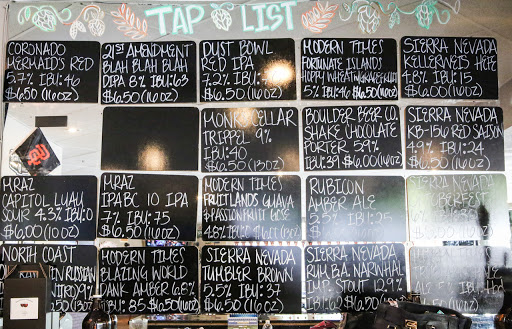 TAP LIST
CORONADO
MERMAIDS RED
5.7% IBU:46
$6.50 (16OZ)
21ST AMENDMENT
BLAH BLAH BLAH
DIPA 8% IBU:63
$6.50 (16OZ)
DUST BOWL
RED IPA
7.2%
$6.50 (16OZ)
MODERN TIMES
FORTUNATE ISLANDS
HOPPY WHEAT
5% IBU:46 $6.50 (16OZ)
SIERRA NEVADA
KELLERWEIS HEFE
4.8% IBU:15
$6.00 (16OZ)
TRIPPEL 9%
IBU:40
$6.50 (13OZ)
BOULDER BEER CO.
SHAKE CHOCOLATE
PORTER 5.9%
IBU:39 $6.00 (16OZ)
SIERRA NEVADA
KB-156 RED SAISON
4.9% IBU:24
$6.50 (16OZ)
MRAZ
CAPITOL LUAU
SOUR 4.3% IBU:0
$6.00 (10OZ)
MRAZ
IPABC 10 IPA
7% IBU:75
$6.50 (16OZ)
MODERN TIMES
FRUITLANDS GUAVA
& PASSION FRUIT GOSE
4.8%
RUBICON
AMBER ALE
5.5% IBU:25
$
SIERRA NEVADA
NORTH COAST
RUSSIAN
9%
$6.50 (10OZ)
MODERN TIMES
BLAZING WORLD
DANK AMBER 6.8%
IBU:85 $6.50 (16OZ)
SIERRA NEVADA
TUMBLER BROWN
5.5% IBU:37
$6.50 (16OZ)
SIERRA NEVADA
RUM B.A. NARWHAL
IMP. STOUT 12.9%